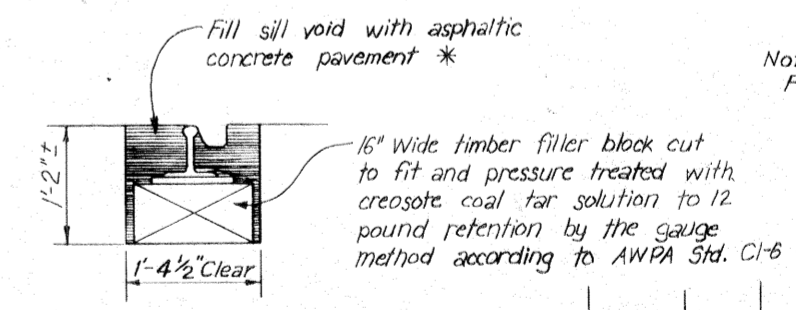 Fill sill void with asphaltic
concrete pavement *
No
F
16" Wide timber filler block cut
to fit and pressure treated with
creosote coal tar solution to 12
pound retention by the gauge
method according to AWPA Std. C1-6
1'-2"±
1'-4½" Clear